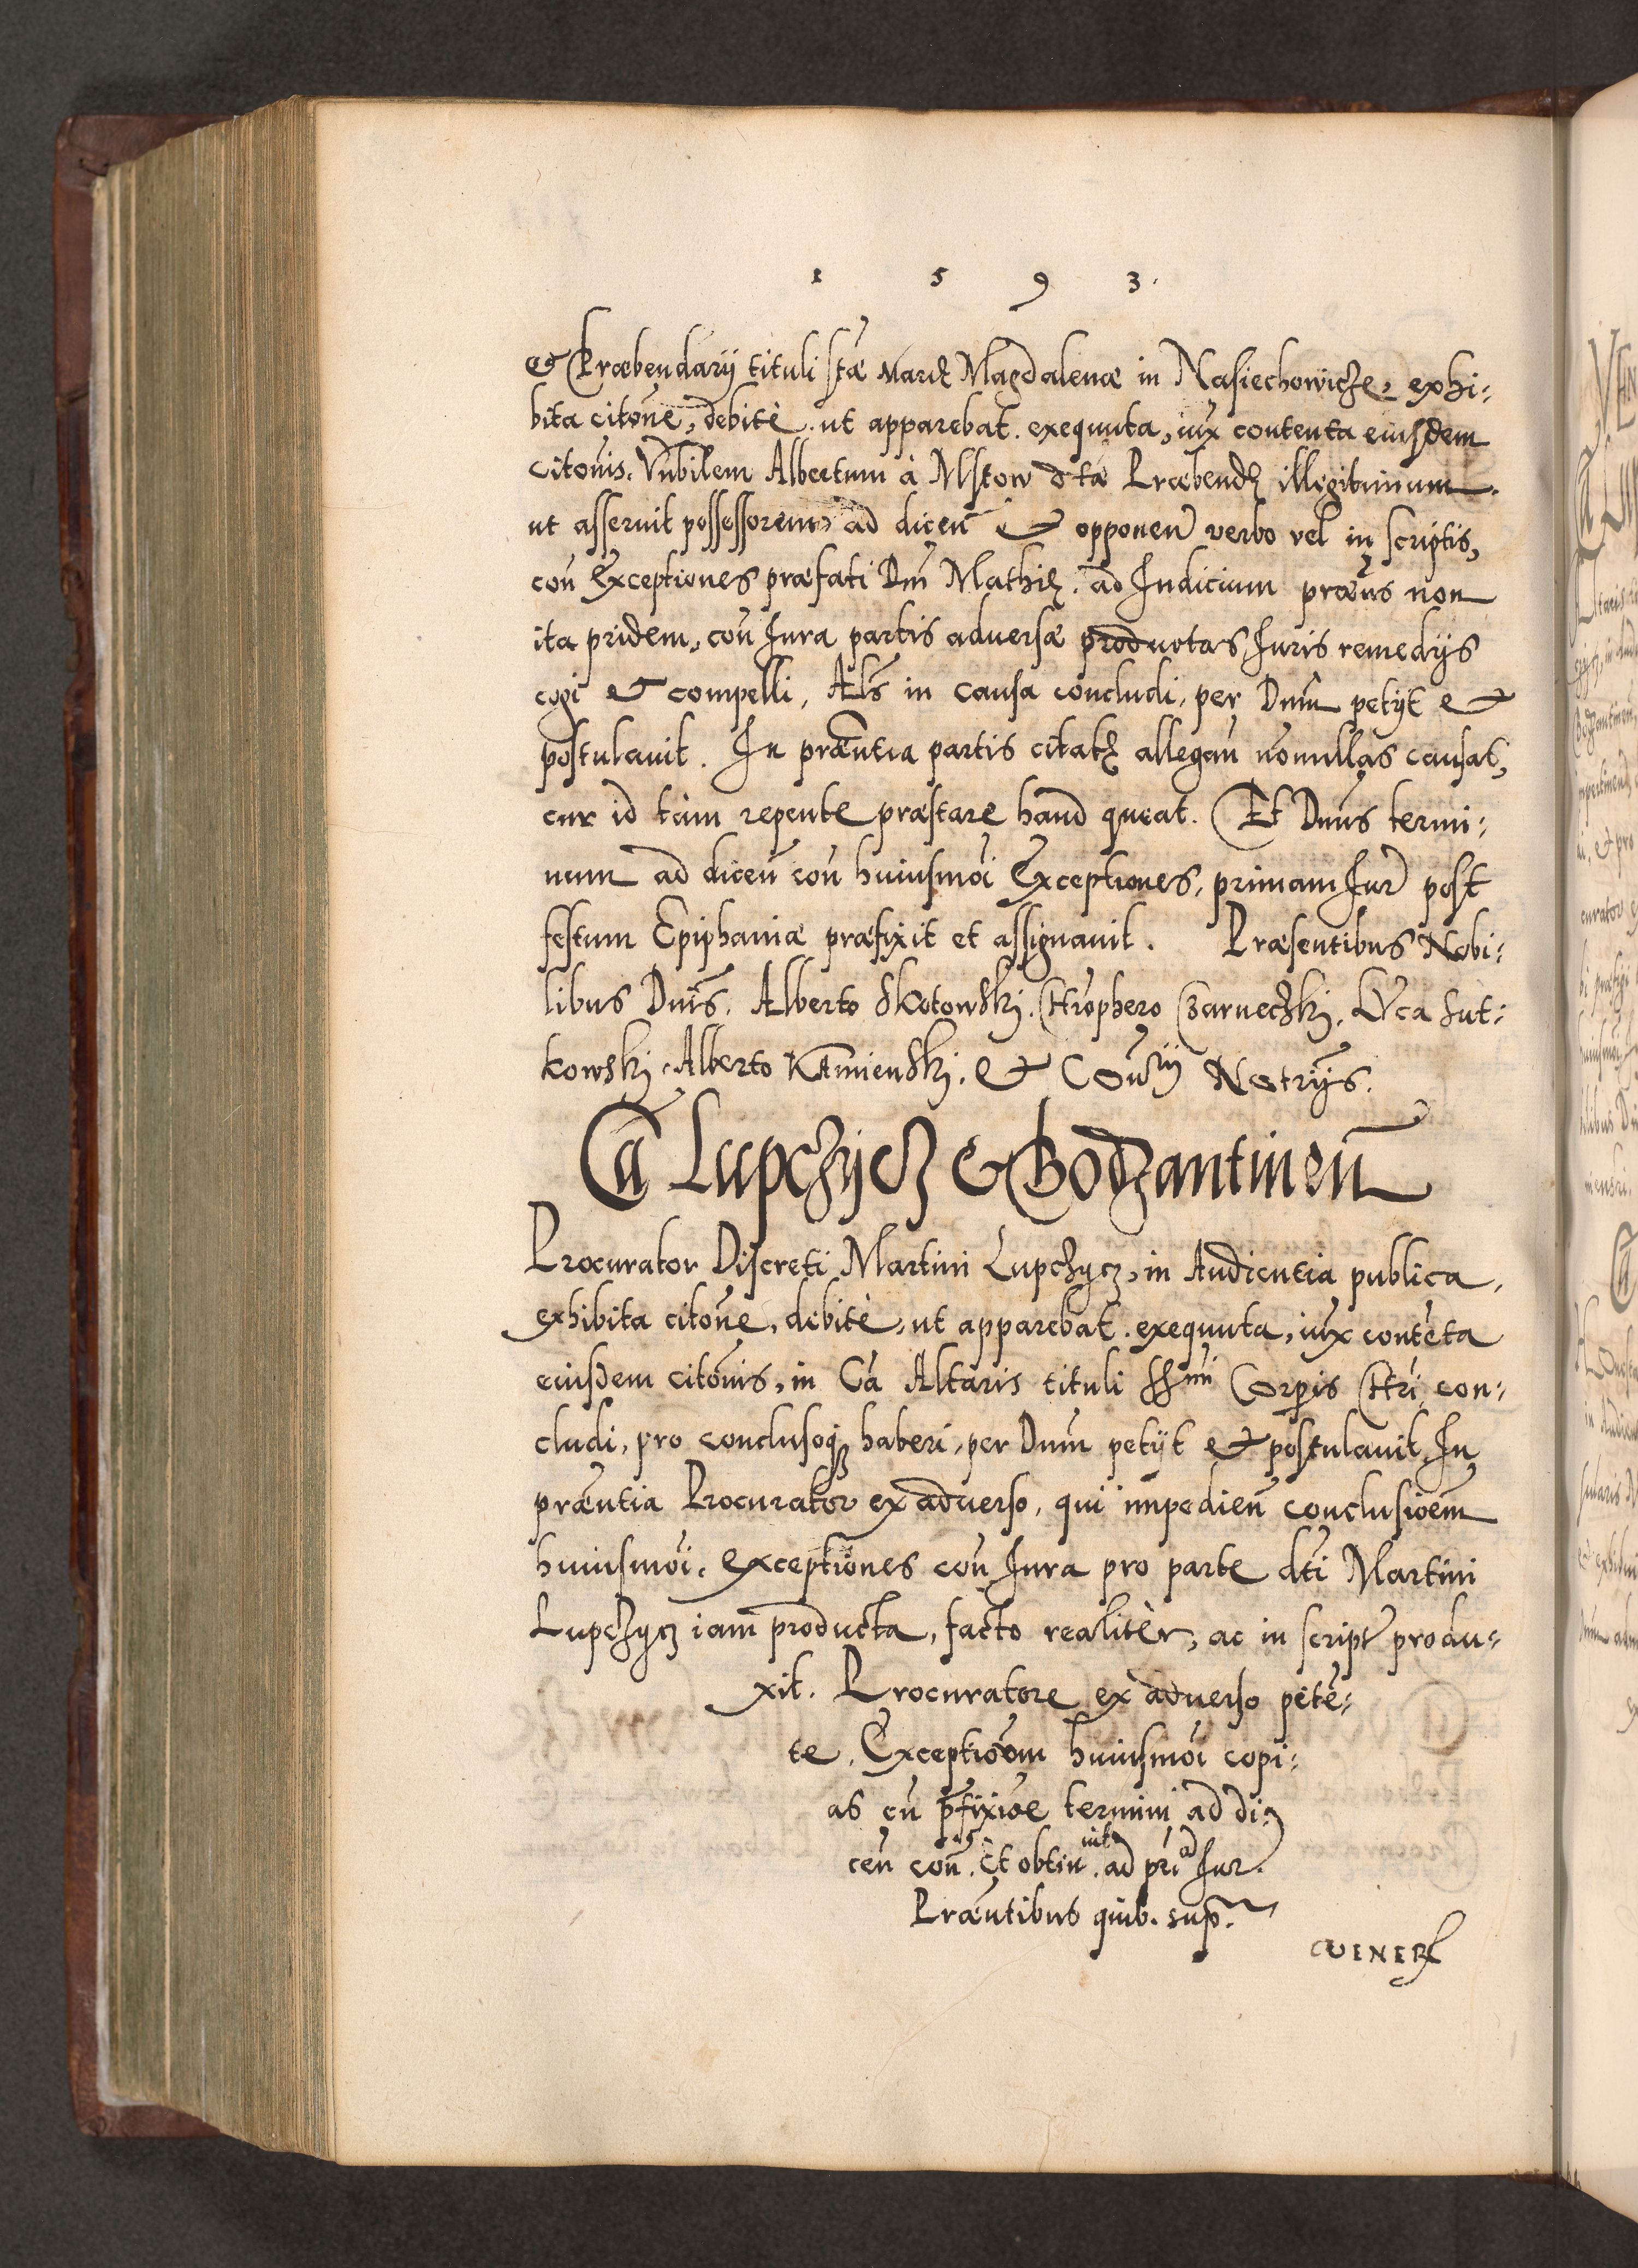 1 5 9 3.
et Præbendarij tituli stæ Mariæ Magdalenæ in Nasiechowicze, exhi-
bita citoñe, debitè, ut apparebat, exequuta, iux contenta eiusdem
citoñis. Vñbilem Albertum à Mstow dtæ Præbendæ illegitimum,
ut asseruit possessorem, ad diceñ et opponeñ verbo vel in scriptis,
coñ Exceptiones præfati Dñi Mathiæ, ad Iudicium præñs non
ita pridem, coñ Iura partis adversæ productas, Iuris remedijs
cogi et compelli, Als in causa concludi, per Dnum petijt et
postulavit. In præñtia partis citatæ allegañ noñullas causas,
cur id tàm repente præstare haud queat. Et Dnus termi-
num ad diceñ coñ huiusmoi Exceptiones, primam Iur post
festum Epiphaniæ præfixit et assignavit. Præsentibus Nobi-
libus Dñis. Alberto Skotowski, Chrophero Czarneczki, Lvca Sut-
kowski, Alberto Kamienski, et Coñsij Notrijs.
Ca Lupczycz et Bodzantineñ
Procurator Discreti Martini Lupczycz, in Audientia publica,
exhibita citoñe, debitè, ut apparebat, exequuta, iux conteta
eiusdem citoñis, in Ca Altaris tituli SSmi Corpis Chri, con-
cludi, pro conclusoq3 haberi, per Dnum petijt et postulavit, In
præñtia Procurator ex adverso, qui impedieñ conclusioem
huiusmoi, exceptiones coñ Iura pro parte dti Martini
Lupczycz iam producta, facto realitèr, ac in script produ-
xit. Procuratore ex adverso petē-
te, Exceptioum huiusmoi copi-
as cū pfixioe termini ad di-
ceñ coñ. Et obtinuit ad pri ad Iur.
Præñtibus quib. sup.
VENERL